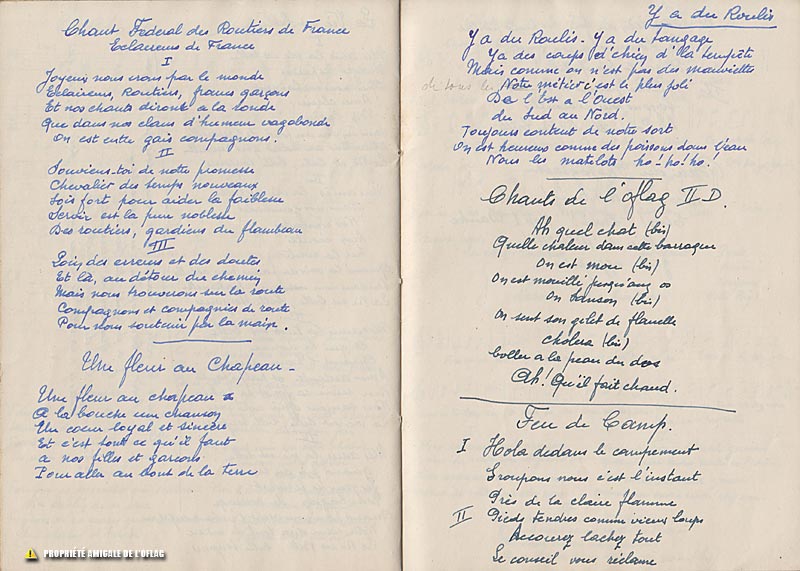 Chant Fédéral des Routiers de France
Eclaireurs de France
I
Joyeux nous irons par le monde
Eclaireurs, Routiers, francs garçons
Et nos chants diront à la ronde
Que dans nos clans d'humeur vagabonde
On est entre gais compagnons.
II
Souviens-toi de notre promesse
Chevalier des temps nouveaux
Sois fort pour aider la faiblesse
Servir est la pure noblesse
Des routiers, gardiens du flambeau
III
Loin des erreurs et des doutes
Et là, au détour du chemin
Mais nous trouverons sur la route
Compagnons et compagnies de route
Pour nous soutenir par la main.
Une fleur au Chapeau -
Une fleur au chapeau
A la bouche une chanson
Un coeur loyal et sincère
Et c'est tout ce qu'il faut
a nos filles et garçons
Pour aller au bout de la terre
PROPRIÉTÉ AMICALE DE L'OFLAG
Y a du Roulis
Y a du Roulis - Y a du tangage
Y a des coups d'chien d'la tempête
Mais comme on n'est pas des mauviettes
de tous les Notre métier c'est le plus joli
De l'Est a l'Ouest
du Sud au Nord.
Toujours content de notre sort
On est heureux comme des poissons dans l'eau
Nous les matelots ho! ho! ho!
Chants de l'oflag II D.
Ah quel chat (bis)
Quelle chaleur dans cette barraque
On est mou (bis)
On est mouillé jusqu'aux os
On transon (bis)
On sent son gilet de flanelle
cholera (bis)
boller a la peau du dos
Ah! Qu'il fait chaud.
Feu de Camp.
I Hola dedans le campement
Groupons nous c'est l'instant
Près de la claire flamme
II Pieds tendres comme vieux loups
Accourez lachez tout
Le conseil vous réclame